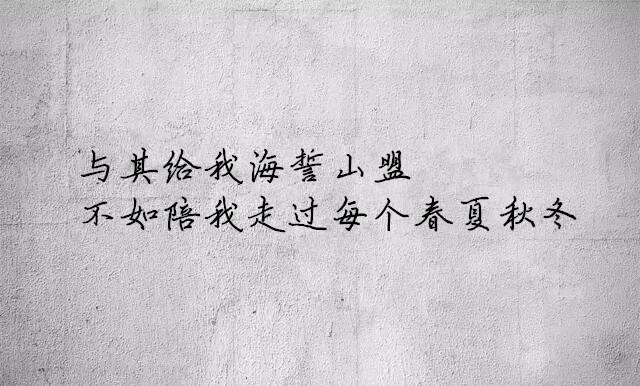 与其给我海誓山盟
不如陪我走过每个春夏秋冬